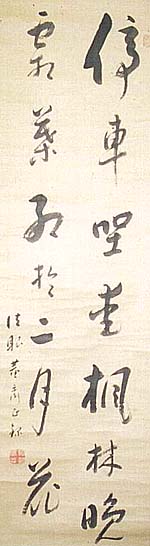 停車坐愛楓林晚
霜葉紅於二月花
法眼